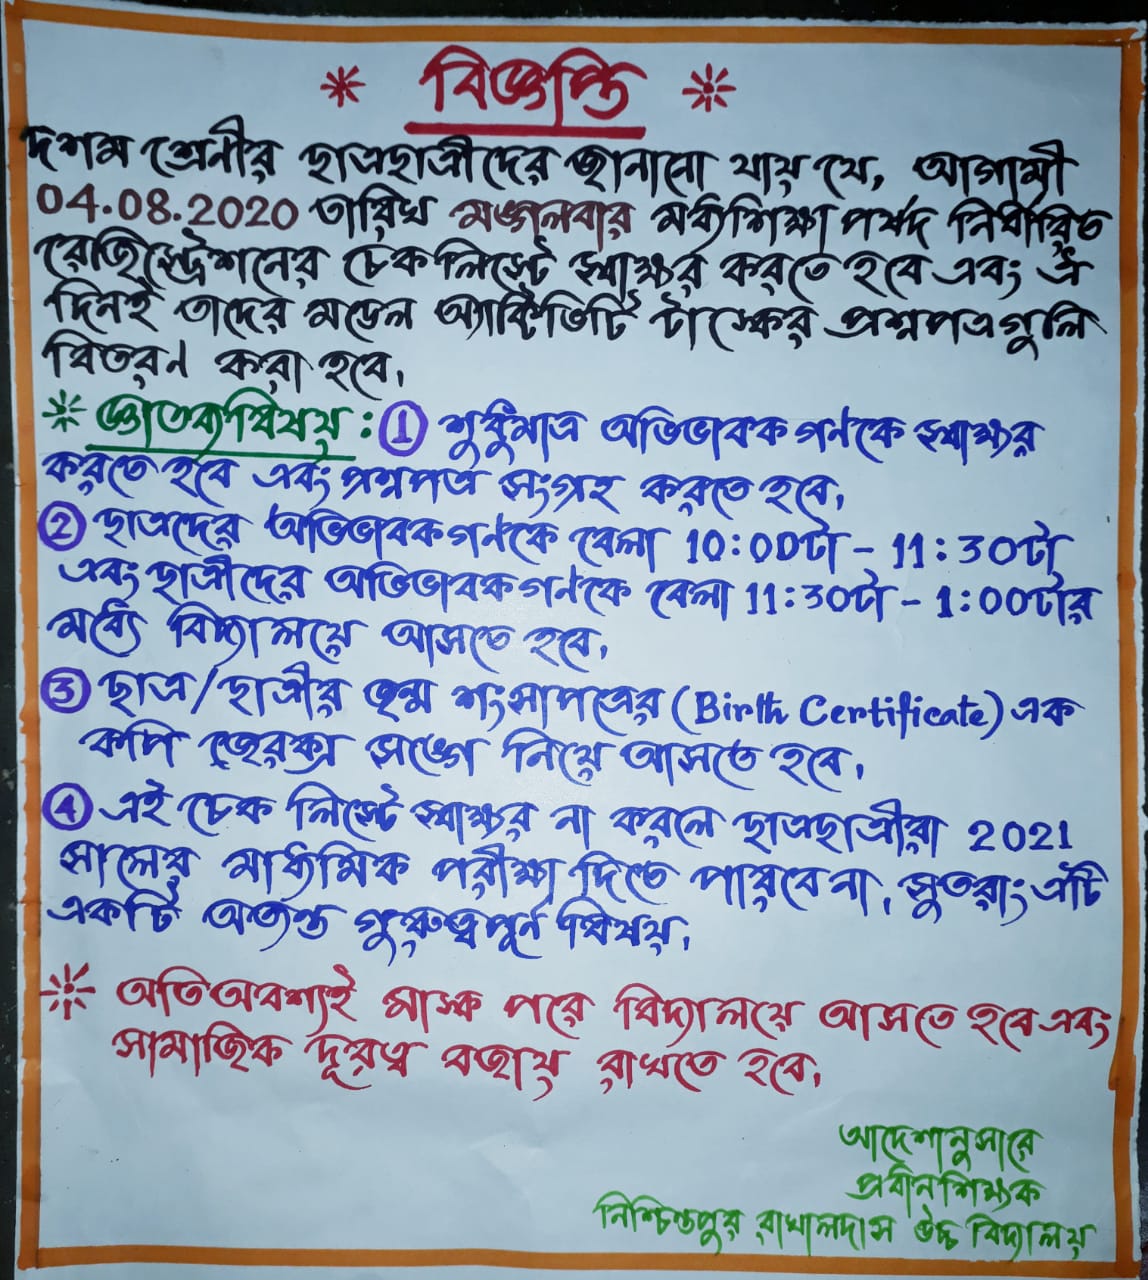 বিজ্ঞপ্তি
দশম শ্রেনীর ছাত্রছাত্রীদের জানানো যায় যে, আগামী
04.08.2020 তারিখ মঙ্গলবার মধ্যশিক্ষা পর্ষদ নির্ধারিত
রেজিস্ট্রেশনের চেকলিস্টে স্বাক্ষর করতে হবে এবং ঐ
দিনই তাদের মডেল অ্যাক্টিভিটি টাস্কের প্রশ্নপত্রগুলি
বিতরণ করা হবে,
জ্ঞাতব্যবিষয় : 1 শুধুমাত্র অভিভাবকগণকে স্বাক্ষর
করতে হবে এবং প্রশ্নপত্র সংগ্রহ করতে হবে,
2 ছাত্রদের অভিভাবকগণকে বেলা 10:00টা - 11:30টা
এবং ছাত্রীদের অভিভাবকগণকে বেলা 11:30টা - 1:00টার
মধ্যে বিদ্যালয়ে আসতে হবে,
3 ছাত্র/ছাত্রীর জন্ম শংসাপত্রের (Birth Certificate) এক
কপি জেরক্স সঙ্গে নিয়ে আসতে হবে,
4 এই চেক লিস্টে স্বাক্ষর না করলে ছাত্রছাত্রীরা 2021
সালের মাধ্যমিক পরীক্ষা দিতে পারবে না, সুতরাং এটি
একটি অত্যন্ত গুরুত্বপূর্ন বিষয়,
অতিঅবশ্যই মাস্ক পরে বিদ্যালয়ে আসতে হবে এবং
সামাজিক দূরত্ব বজায় রাখতে হবে,
আদেশানুসারে
প্রধানশিক্ষক
নিশ্চিন্তপুর রাখালদাস উচ্চ বিদ্যালয়